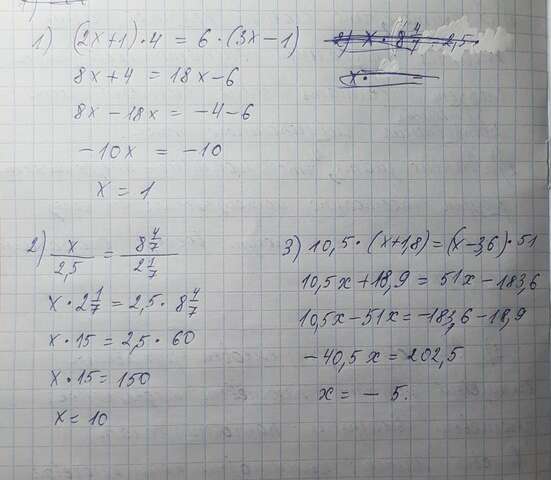 1) (2x+1)·4 = 6·(3x-1)
8x+4 = 18x-6
8x-18x = -4-6
-10x = -10
x = 1
2) x · 8 4/7 = 2,5
x·  =
2) x/2,5 = 8 4/7 / 2 1/7
x·2 1/7 = 2,5·8 4/7
x·15 = 2,5·60
x·15 = 150
x = 10
3) 10,5·(x+1,8) = (x-3,6)·51
10,5x+18,9 = 51x-183,6
10,5x-51x = -183,6-18,9
-40,5x = 202,5
x = - 5.